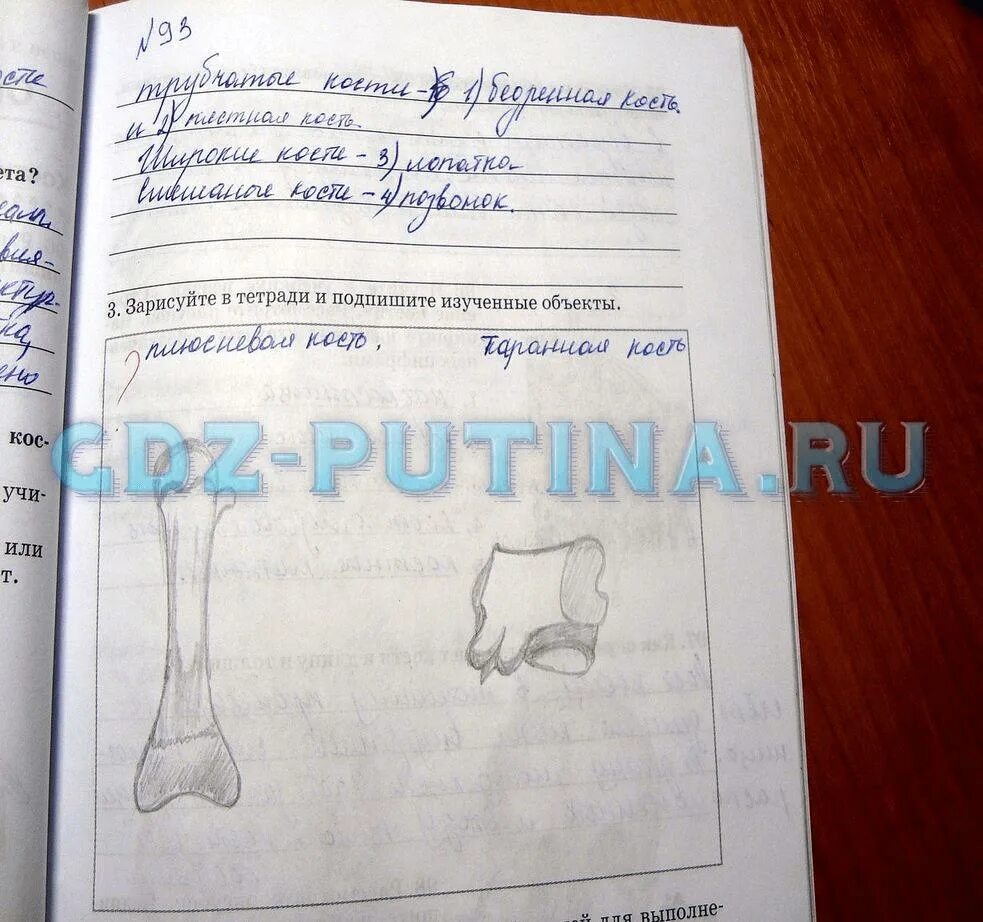 №93
трубчатые кости - 1) бедренная кость
и 2) плестная кость
Широкие кости - 3) лопатка
Смешаные кости - 4) позвонок.
3. Зарисуйте в тетради и подпишите изученные объекты.
плюсневая кость. Таранная кость
GDZ-PUTINA.RU
ости
ета?
вия-
ктур-
ено
кос-
учи-
или
т.
ей для выполне-